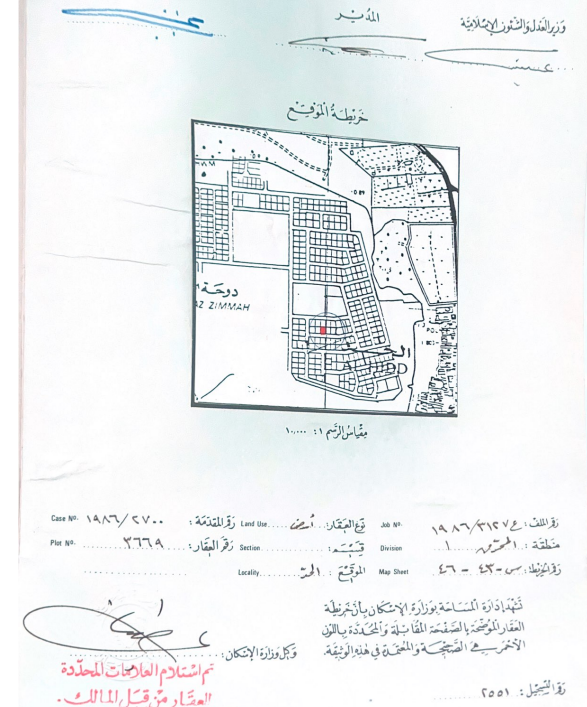 وزير العدل والشئون الإسلامية
المدير
خريطة الموقع
دوحة
AZ ZIMMAH
مقياس الرسم ١ : ١٠,٠٠٠
رقم الملف : ع ١٩٨٦/٣١٢٧ Job No. نوع العقار : أرض Land Use رقم المقدمة : ١٩٨٦/٢٧٠٠ Case No.
منطقة : المحرق ١ Division قسيمه : Section رقم العقار : ٣٦٦٩ Plot No.
رقم الخريطة : س - ٤٣ - ٤٦ Map Sheet الموقع : الحد Locality
تشهد إدارة المساحة بوزارة الإسكان بأن خريطة
العقار الموضحة بالصفحة المقابلة والمحددة باللون
الأحمر هي الصحيحة والمعتمدة في هذه الوثيقة.
وكيل وزارة الإسكان :
تم استلام العلامات المحددة
العقار من قبل المالك .
رقم التسجيل : ٢٥٥١